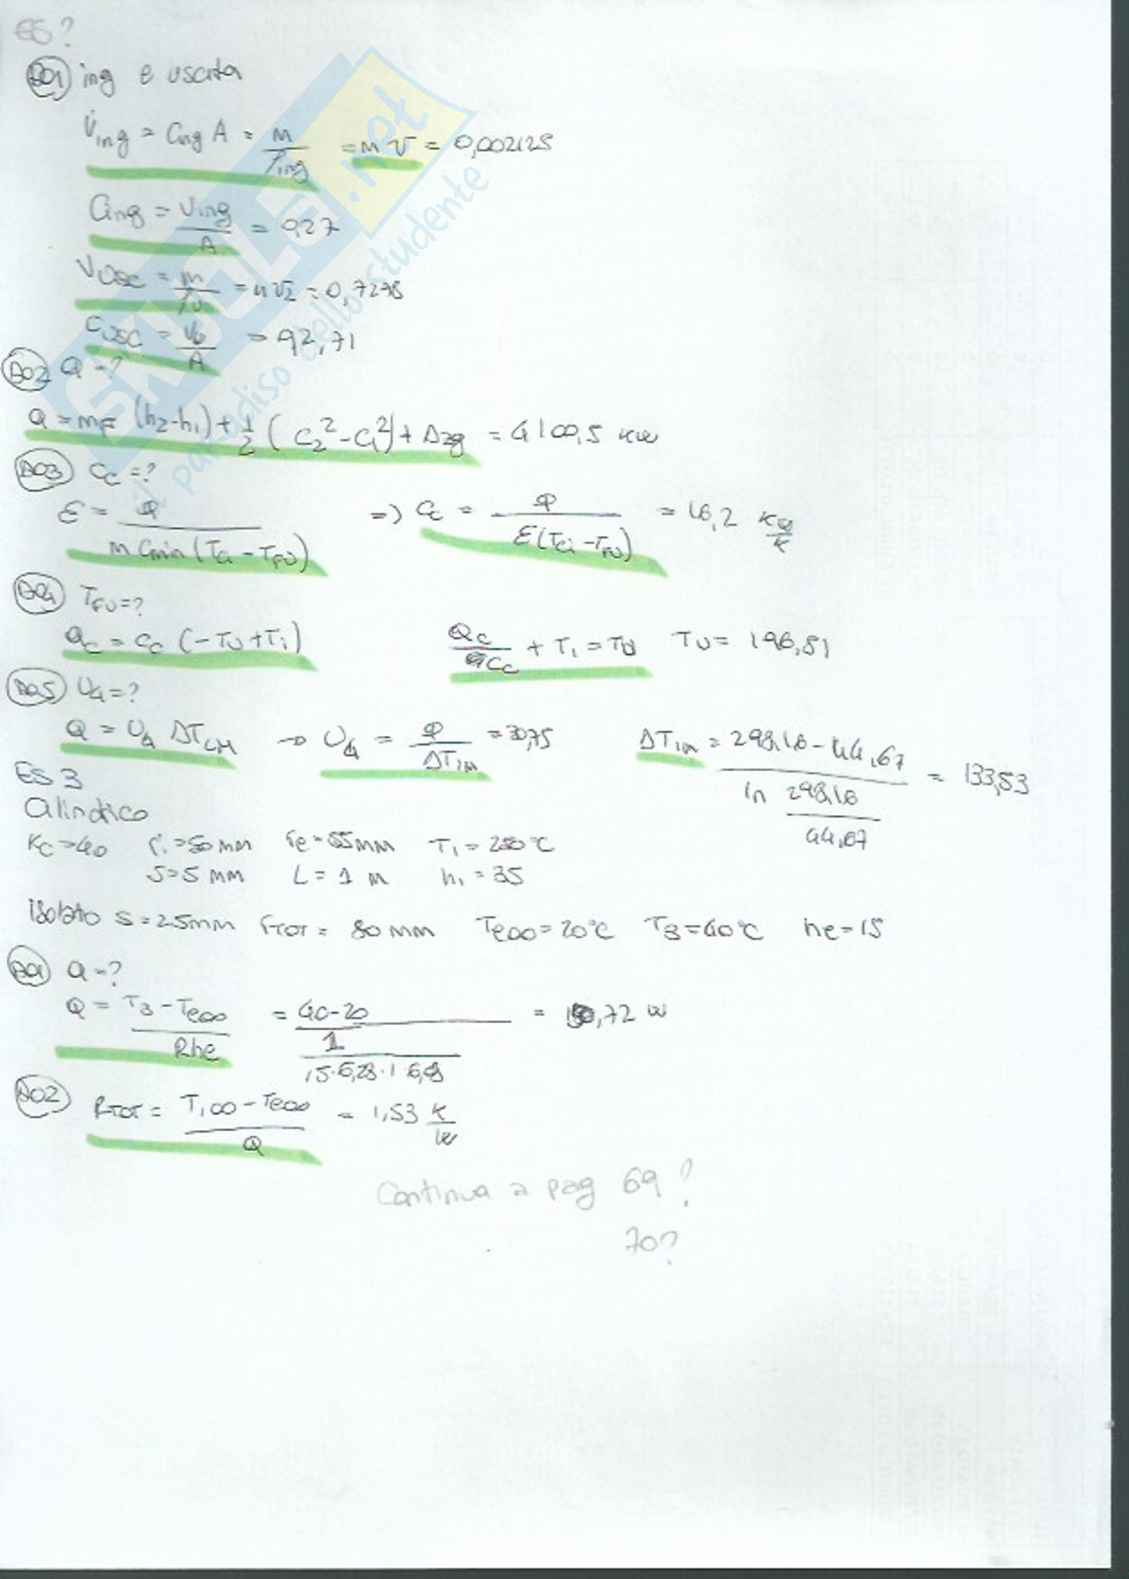 ES?
D01 ing e uscita
V̇ing = Cing A = m/ρing = m v = 0,002125
Cing = Ving/A = 0,27
Vusc = m/ρu = m v2 = 0,7278
Cusc = Vu/A = 92,71
D02 Q=?
Q = mF (h2-h1) + 1/2 (C2² - C1²) + Δzg = 4100,5 kW
D03 Cc=?
ε = Φ / m Cmin (Tci - TFU) => Cc = Φ / ε(Tci - TFU) = 16,2 kW/K
D04 TFU=?
Qc = Cc (-Tu + Ti) Qc/Cc + Ti = Tu Tu = 196,81
D05 UA=?
Q = UA ΔTLM -> UA = Φ/ΔTlm = 30,75 ΔTlm = 298,18 - 44,67 / ln 298,18/44,67 = 133,53
ES 3
Cilindrico
Kc=40 ri=50mm re=55mm Ti=250°C
S=5mm L=1m hi=35
Isolato S=25mm rTOT=80mm Te∞=20°C T3=40°C he=15
D01 Q=?
Q = T3 - Te∞ / Rhe = 40-20 / 1 / 15·6,28·1· = ,72 W
D02 RTOT = Ti∞ - Te∞ / Q = 1,53 K/W
Continua a pag 69?
70?
SKUOLA.net
il paradiso dello studente